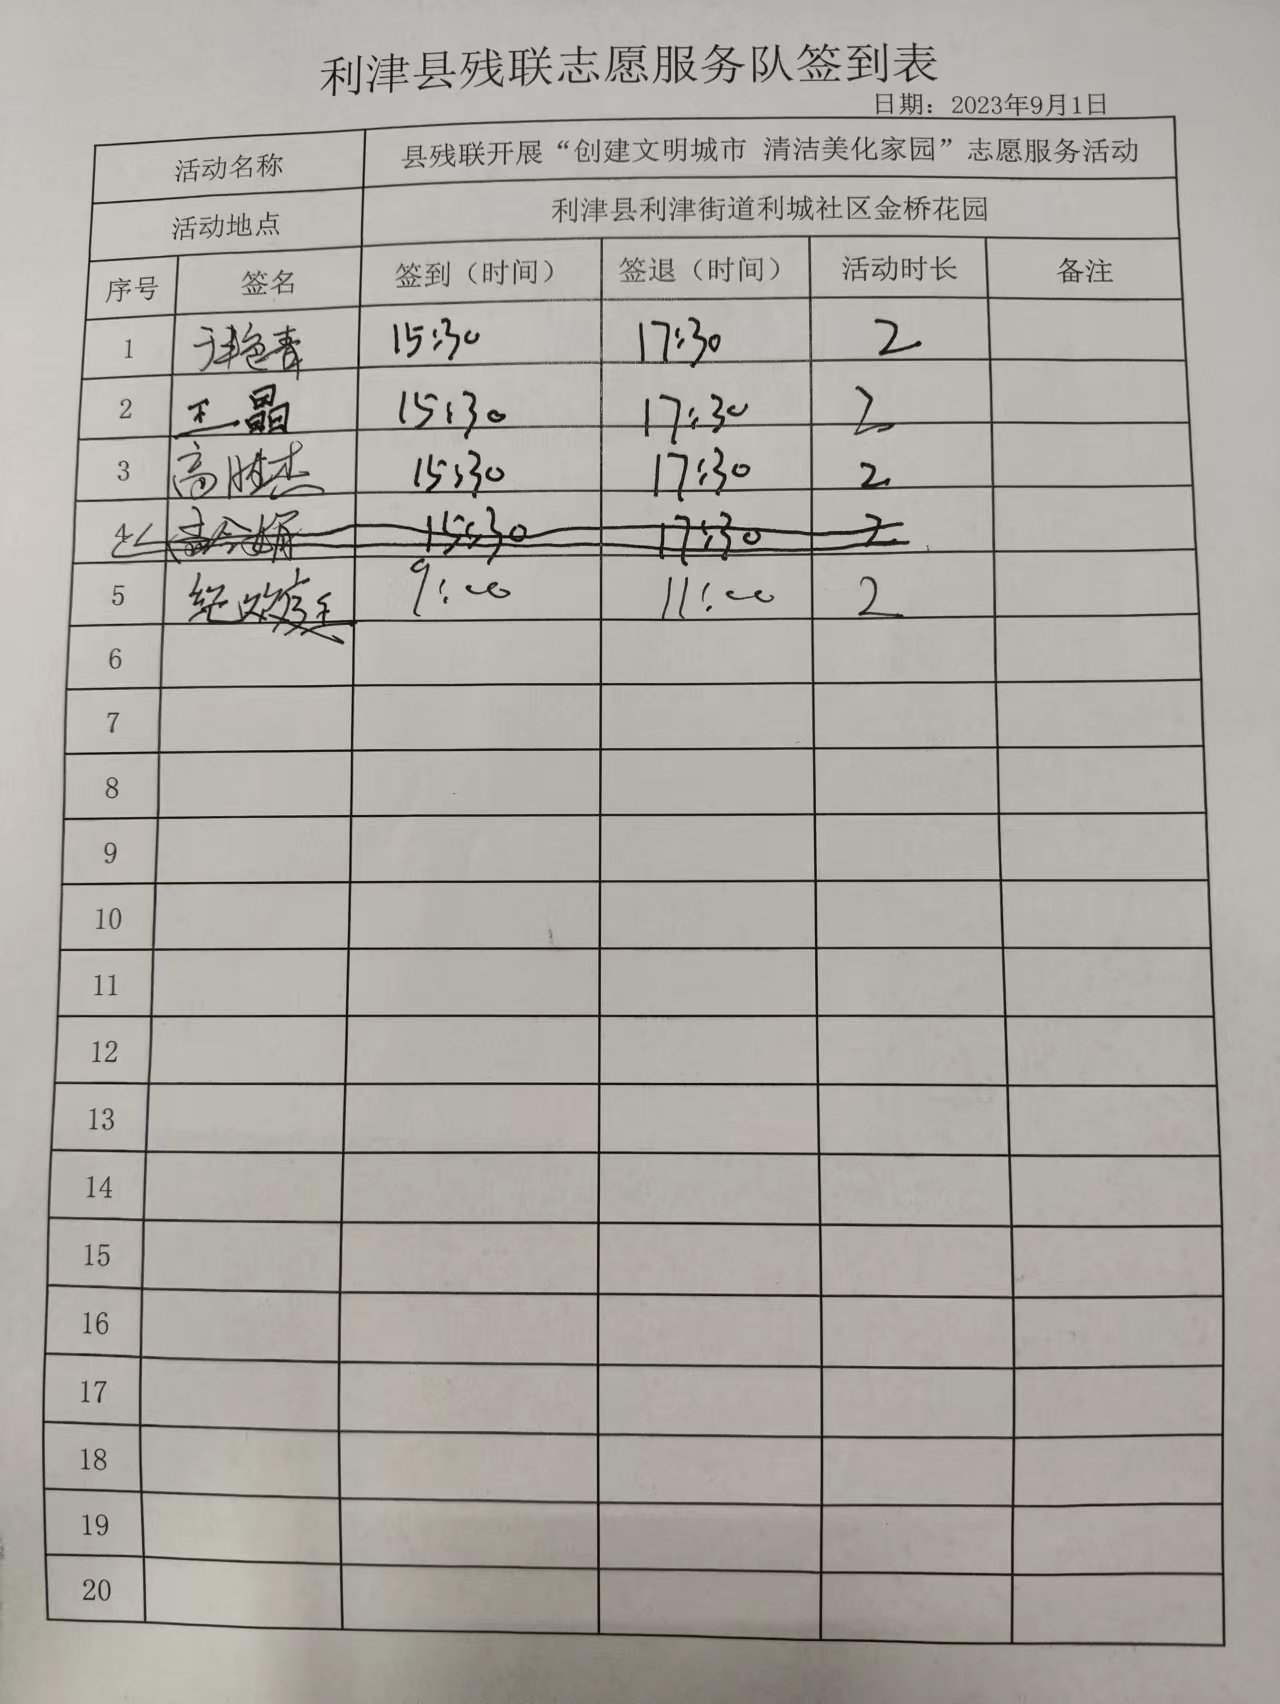 利津县残联志愿服务队签到表
日期：2023年9月1日
活动名称 县残联开展“创建文明城市 清洁美化家园”志愿服务活动
活动地点 利津县利津街道利城社区金桥花园
序号 签名 签到（时间） 签退（时间） 活动时长 备注
1 15:30 17:30 2
2 王晶 15:30 17:30 2
3 高胜杰 15:30 17:30 2
4 15:30 17:30 2
5 9:00 11:00 2
6
7
8
9
10
11
12
13
14
15
16
17
18
19
20